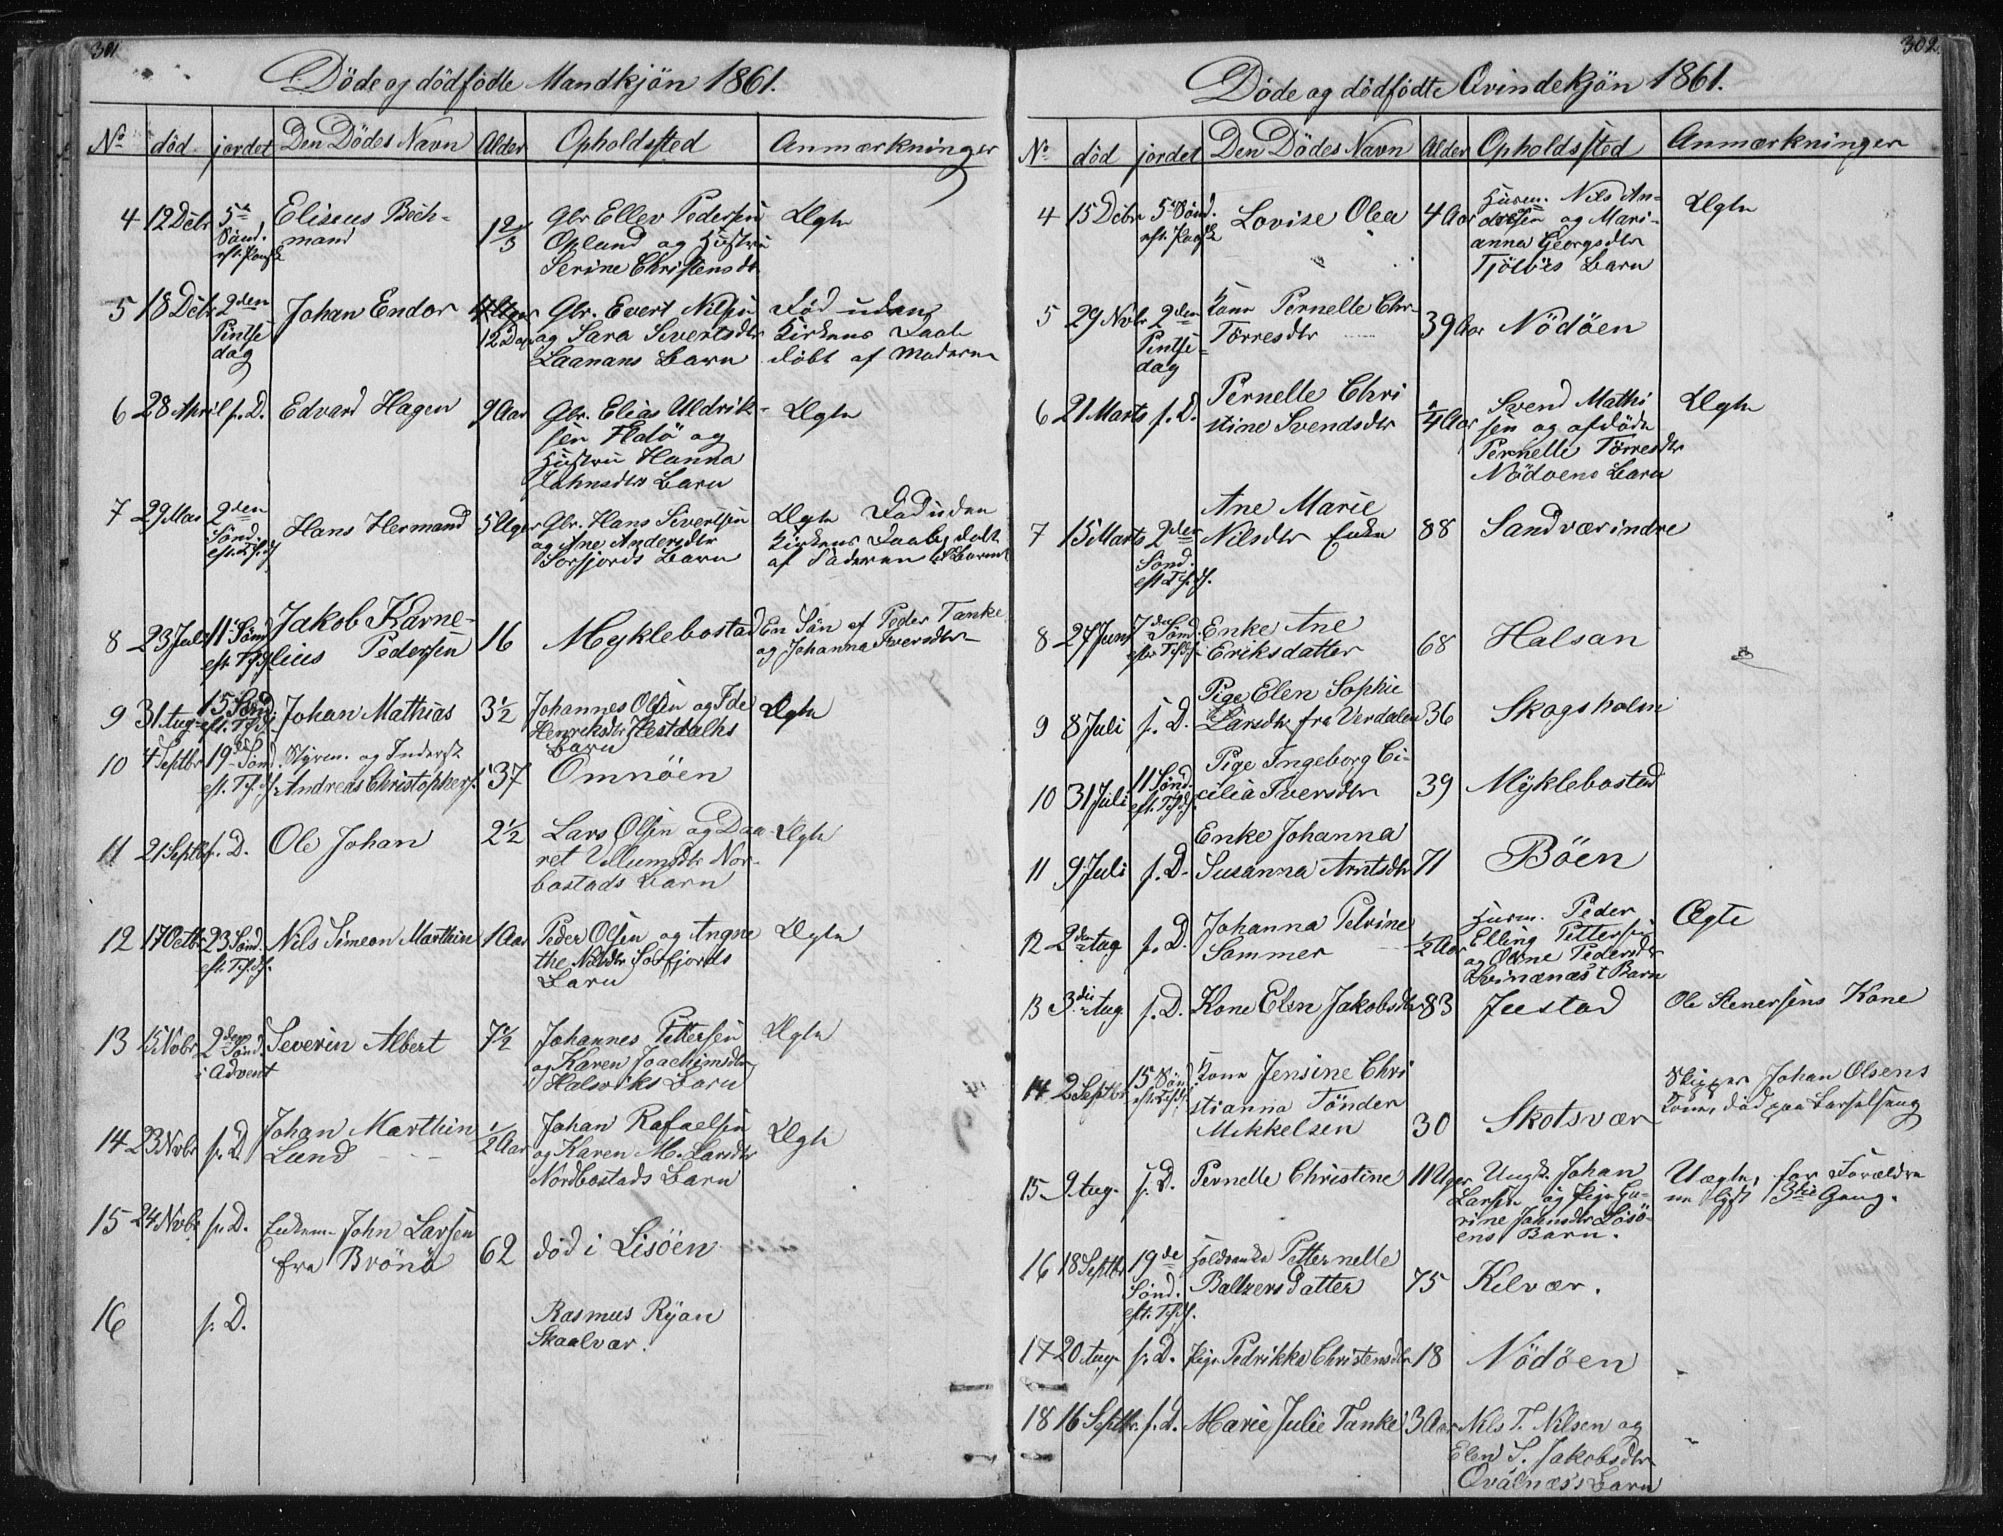 301
Döde og dödfödte Mandkjön 1861.
No död jordet Den Dödes Navn Alder Opholdssted Anmærkninger
4 12 Debr 5te Sönd. eft. Paaske Eliseus Bech-
mand 1 2/3 Gbr Ellev Pedersen
Opland og Hustru
Serine Christensdr
Ægte
5 18 Debr 2den Pintse dag Johan Endor 4 Uger 12 Dage Gbr. Evert Nilsen
og Sara Sivertsdtr
Laanans Barn
Död uden
Kirkens Daab
döbt af Moderen
6 28 April s. D. Edvard Hagen 9 Aar Gbr. Elias Uldrik-
sen Flodö og
Hustru Hanna
Johnsdtr Barn
Ægte
7 29 Mai 2den Sönd. eft. Tfdf Hans Hermand 5 Uger Gbr. Hans Sivertsen
og Ane Andersdtr
Sörfjords Barn
Ægte Död uden
Kirkens Daab, döbt
af Faderen til Barnet
8 23 Juli 11 Sönd eft. Tfdf Jakob Karne-
lius Pedersen 16 Myklebostad En Sön af Peder Tanke
og Johanna Iversdtr
9 31 Aug. 15 Sönd eft. Tfdf. Johan Mathias 3½ Johannes Olsen og Ide
Henriksdtr Hestdalhs
Barn
Ægte
10 4 Septbr 19de Sönd. eft. Tfdf. Styrm. og Inderst
Andreas Christophers. 37 Omnöen
11 21 Septb s. D. Ole Johan 2½ Lars Olsen og Daa-
ret Villumsdtr Nor-
bostads Barn
Ægte
12 17 Octbr 23 Sönd. eft. Tfdf. Nils Simeon Marthin 1 Aar Peder Olsen og Angne
the Nilsdtr Sörfjords
Barn
Ægte
13 15 Novbr 2den Sönd. i Advent Severin Albert 7½ Johannes Pettersen
og Karen Joachimsdtr
Halsviks Barn
Ægte
14 23 Novbr s. D Johan Marthin
Lund ½ Aar Johan Rafaelsen
og Karen M. Larsdtr
Nordbostads Barn
Ægte
15 24 Novbr s. D. Enkem. John Larsen
fra Brönö 62 död i Lisöen
16 s. D. Rasmus Ryan
Skaalvær.
302
Döde og dödfödte Qvindekjön 1861.
No död jordet Den Dödes Navn Alder Opholdssted Anmærkninger
4 15 Debr 5 Sönd. eft. Paaske Lovise Olea 4 Aar Husm. Nils An-
dersen og Mari-
anna Georgsdtr
Tjötöes Barn
Ægte
5 29 Novbr 2den Pintse dag Kone Pernelle Chr.
Törresdtr 39 Aar Nödöen
6 21 Marts s. D. Pernelle Chri
stine Svendsdtr ¼ Aar Svend Mathi
sen og afdöde
Pernelle Törresdtr
Nödöens Barn
Ægte
7 15 Marts 2den Sönd. eft Tfdf. Ane Marie
Nilsdtr Enke 88 Sandvær indre
8 27 Juni 7de Sönd. eftr Tfdf. Enke Ane
Eriksdatter 68 Halsan
9 8 Juli s. D. Pige Elen Sophie
Larsdtr fra Verdalen 36 Skogsholm
10 31 Juli 11 Sönd. eft. Tfdf. Pige Ingeborg Ci-
cilia Iversdtr 39 Myklebostad
11 9 Juli s. D. Enke Johanna
Susanna Arntsdtr 71 Böen
12 2den Aug s. D. Johanna Petrine
Sommer ½ Aar Husm. Peder
Elling Pettersen
og Oline Pedersdtr
Svinænæst Barn
Ægte
13 3die Aug s. D. Kone Elen Jakobsdtr 83 Jestad Ole Stenersens Kone
14 2 Septbr 15 Sön eft. Tfdf Kone Jensine Chri
stianna Tönder
Mikkelsen 30 Skotsvær Skipper Johan Olsens
Kone, död paa Barselseng
15 9 Aug. s. D. Pernelle Christine 11 Uger Ungk. Johan
Larsen og Pige Gu-
rine Johnsdtr Lisö-
ens Barn.
Uægte, for Forældre
ne Lgst 3die Gang.
16 18 Septbr 19de Sönd. eft. Tfdf. Petternelle
Baltzersdatter 75 Kilvær.
17 20 Aug. s. D. Pige Pedrikke Christensdtr 18 Nödöen
18 16 Septbr. s. D. Marie Julie Tanke 3 Aar Nils T. Nilsen og
Elen S. Jakobsdtr
Qvalnæs's Barn